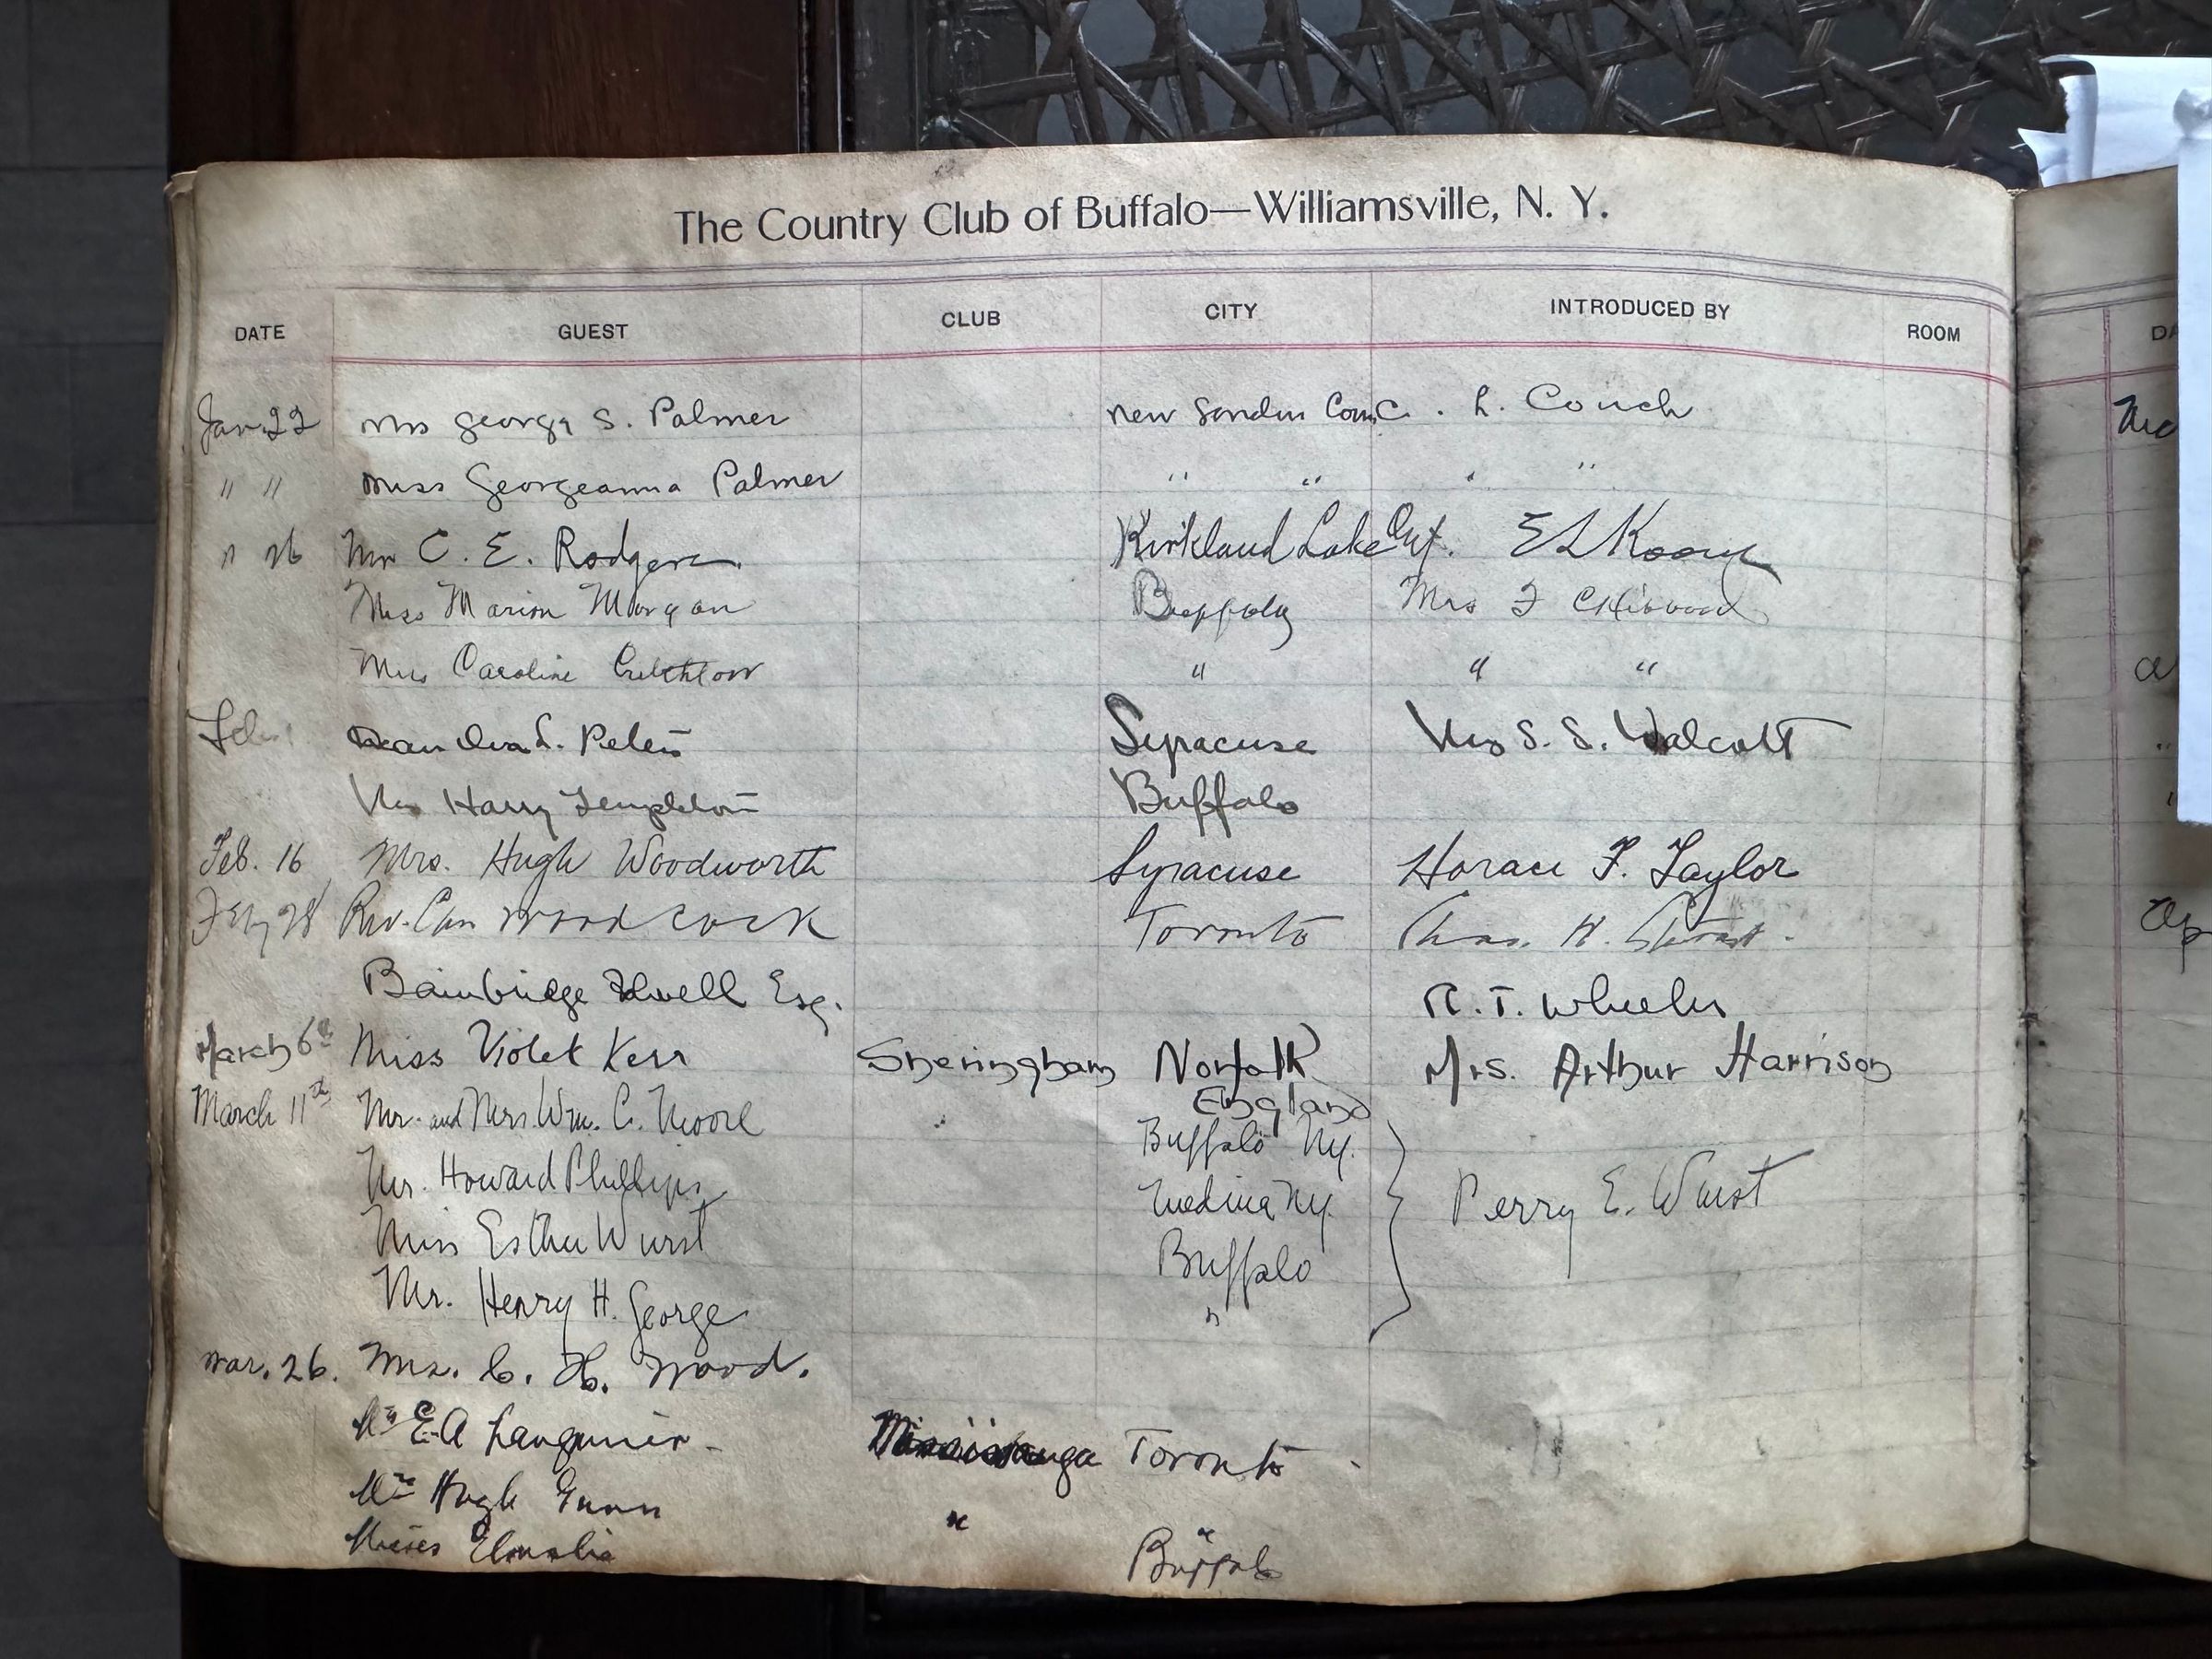 The Country Club of Buffalo—Williamsville, N. Y.
DATE GUEST CLUB CITY INTRODUCED BY ROOM
Jan 22 Mrs George S. Palmer New London Conn C. L. Couch
" " Miss Georgeanna Palmer " " " "
" 26 Mr C. E. Rodgers Kirkland Lake Ont. E L Koons
Miss Marion Morgan Buffalo Mrs F
Miss Caroline " " "
Feb. Dean L. Peters Syracuse Mrs S. S. Walcott
Mrs Harry Templeton Buffalo
Feb. 16 Mrs. Hugh Woodworth Syracuse Horace F. Taylor
Feby 28 Rev. Can Woodcock Toronto Chas. H.
Bainbridge Esq. R. T. Wheeler
March 6th Miss Violet Kerr Sheringham Norfolk Mrs. Arthur Harrison
England
March 11th Mr. and Mrs. Wm. C. Moore Buffalo N.Y.
Mr. Howard Phillips Medina N.Y. Perry E. Wurst
Miss Esther Wurst Buffalo
Mr. Henry H. George "
Mar. 26. Mrs. C. H. Wood.
Mrs E. A Mississauga Toronto
Mrs Hugh Gunn " "
Misses Elmslie Buffalo